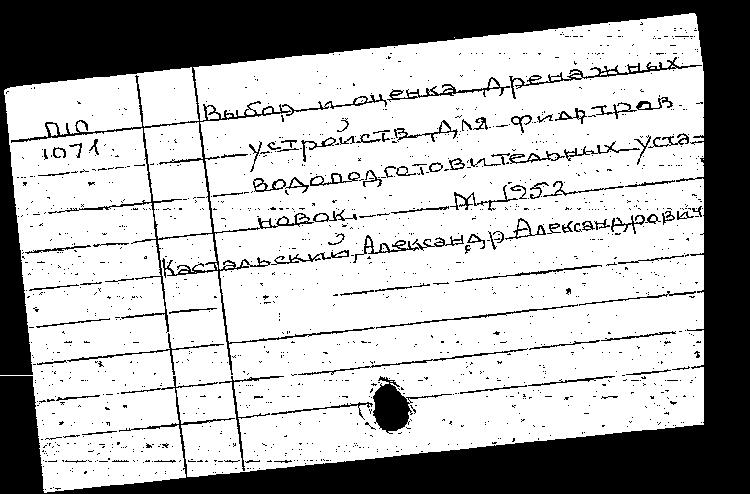 П10
1071
Выбор и оценка дренажных
устройств для фильтров
водоподготовительных уста-
новок. М., 1952
Кастальский, Александр Александрович